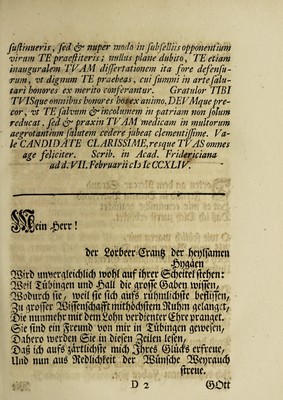 sustinueris, sed & nuper modo in subselliis opponentium
virum TE praestiteris; nullus plane dubito, TE etiam
inauguralem TVAM dissertationem ita fore defensu-
rum, vt dignum TE praebeas, cui summi in arte salu-
tari honores ex merito conferantur. Gratulor TIBI
TVISque omnibus honores hosce ex animo, DEVMque pre-
cor, vt TE salvum & incolumem in patriam non solum
reducat, sed & praxin TVAM medicam in multorum
aegrotantium salutem cedere jubeat clementissime. Va-
le CANDIDATE CLARISSIME, resque TVAS omnes
age feliciter. Scrib. in Acad. Fridericiana
ad d. VII. Februarii cIɔ Iɔ CCXLIV.
Mein Herr!
der Lorbeer Crantz der heylsamen
Hygäen
Wird unvergleichlich wohl auf ihrer Scheitel stehen:
Weil Tübingen und Hall die grosse Gaben wissen,
Wodurch sie, weil sie sich aufs rühmlichste beflissen,
Zu grosser Wissenschafft mit höchstem Ruhm gelanget,
Die nunmehr mit dem Lohn verdienter Ehre pranget.
Sie sind ein Freund von mir in Tübingen gewesen,
Dahero werden Sie in diesen Zeilen lesen,
Daß ich aufs zärtlichste mich Jhres Glücks erfreue,
Und nun aus Redlichkeit der Wünsche Weyrauch
streue.
D 2
GOtt